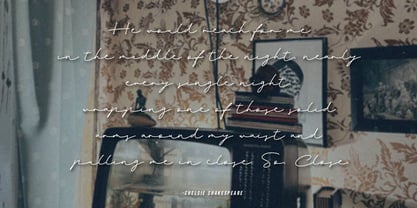 He would reach for me
in the middle of the night, nearly
every single night
wrapping one of those solid
arms around my waist and
pulling me in close. So. Close.
-CHELSIE SHAKESPEARE